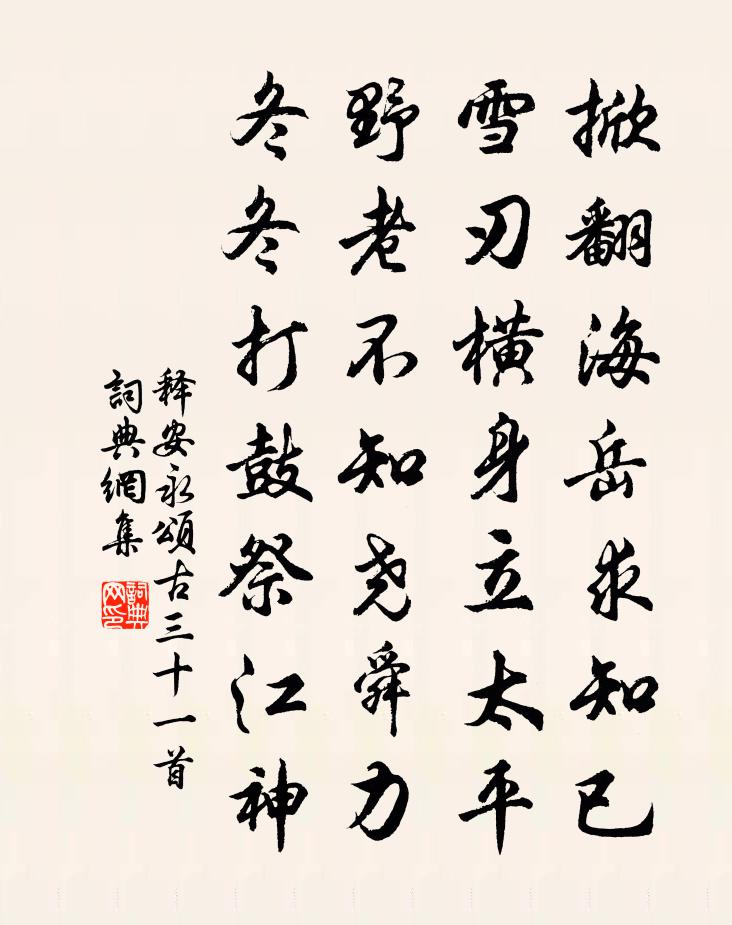 掀翻海岳求知已
雪刃橫身立太平
野老不知尧舜力
冬冬打鼓祭江神
释安永頌古三十一首
詞典網集
詞典网印